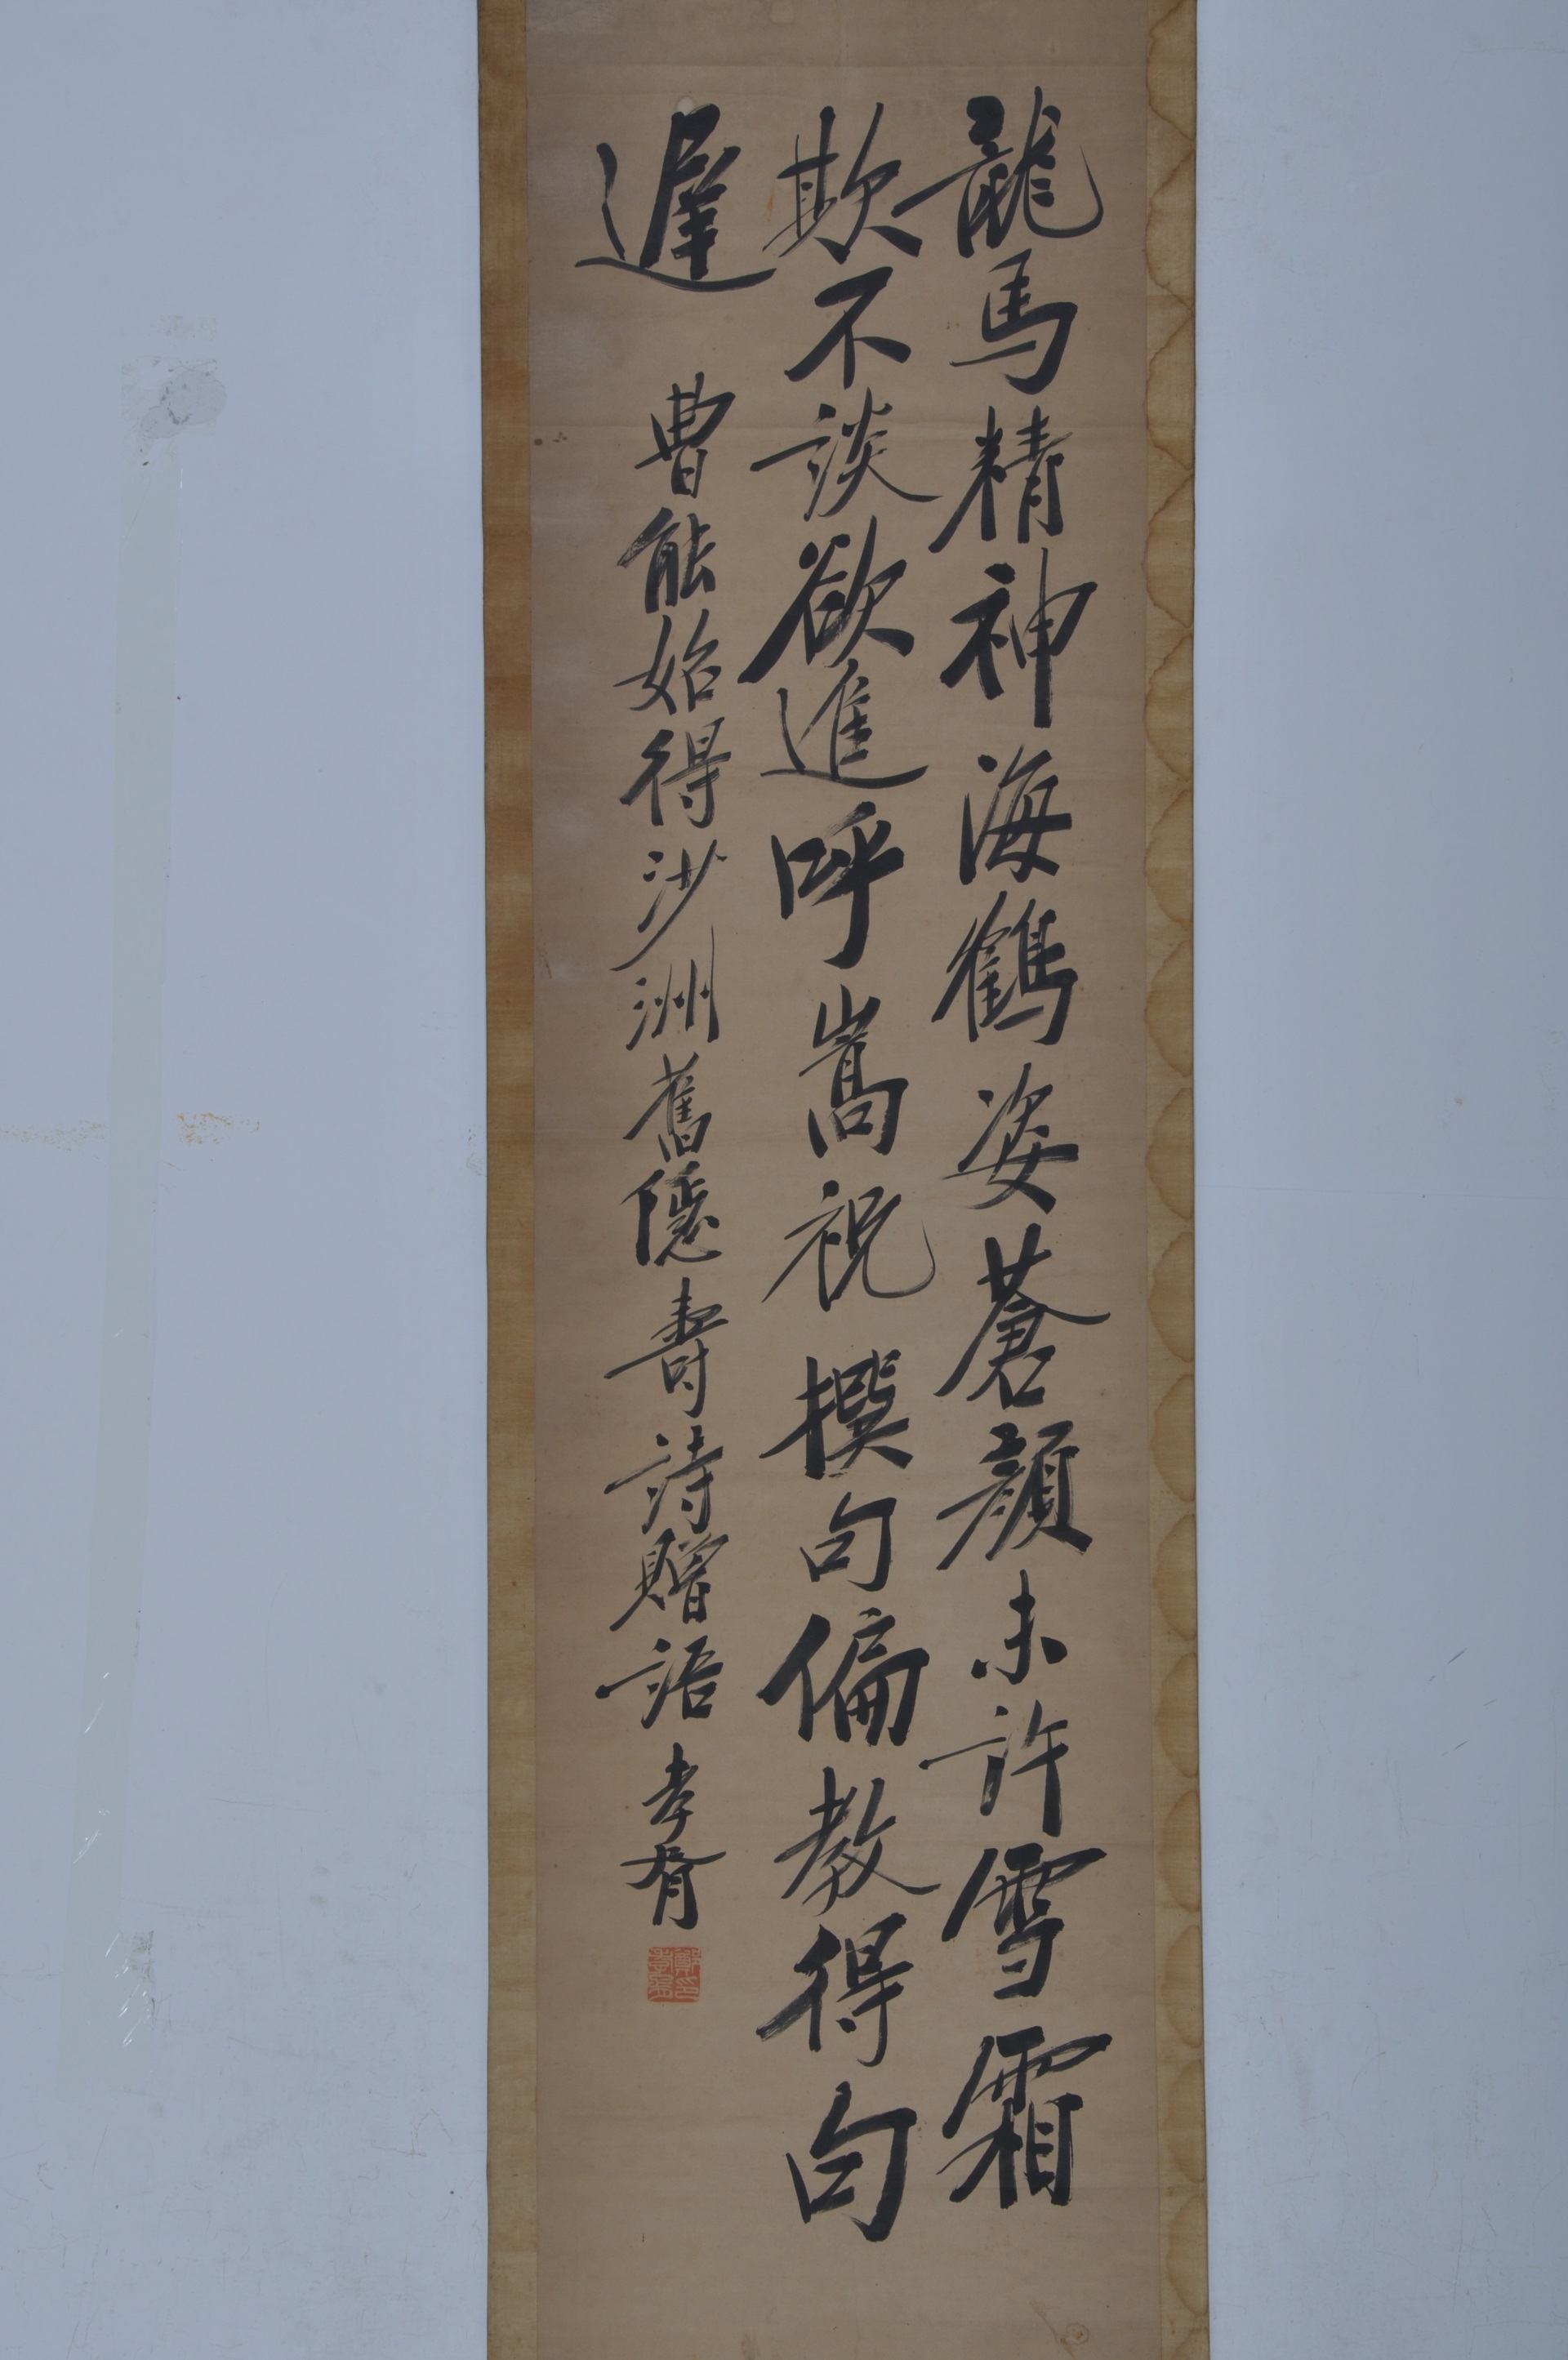 龍馬精神海鶴姿蒼顏未許雪霜
欺不談欲進呼嵩祝撰句偏教得句
遲
曹能始得沙洲舊隱壽詩贈語 孝胥
鄭孝胥印